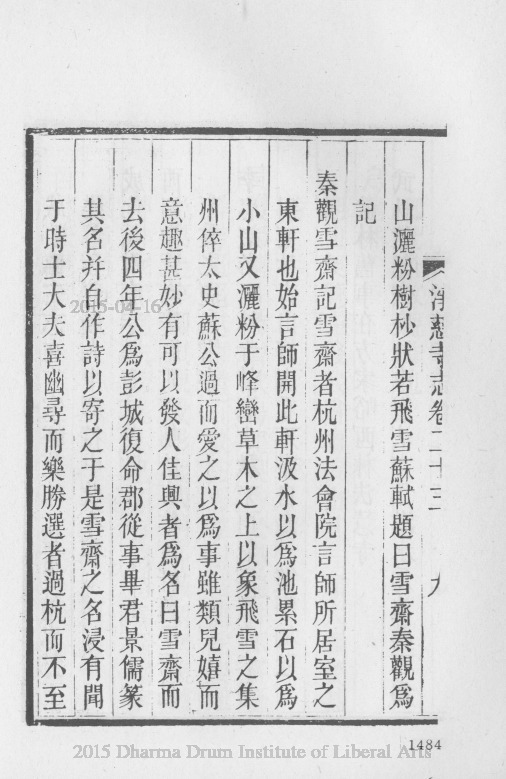 淨慈寺志卷二十三 九
山灑粉樹杪狀若飛雪蘇軾題曰雪齋秦觀爲
記
秦觀雪齋記雪齋者杭州法會院言師所居室之
東軒也始言師開此軒汲水以爲池累石以爲
小山又灑粉于峰巒草木之上以象飛雪之集
州倅太史蘇公過而愛之以爲事雖類兒嬉而
意趣甚妙有可以發人佳興者爲名曰雪齋而
去後四年公爲彭城復命郡從事畢君景儒篆
其名幷自作詩以寄之于是雪齋之名浸有聞
于時士大夫喜幽尋而樂勝選者過杭而不至
2015-04-16
1484
2015 Dharma Drum Institute of Liberal Arts